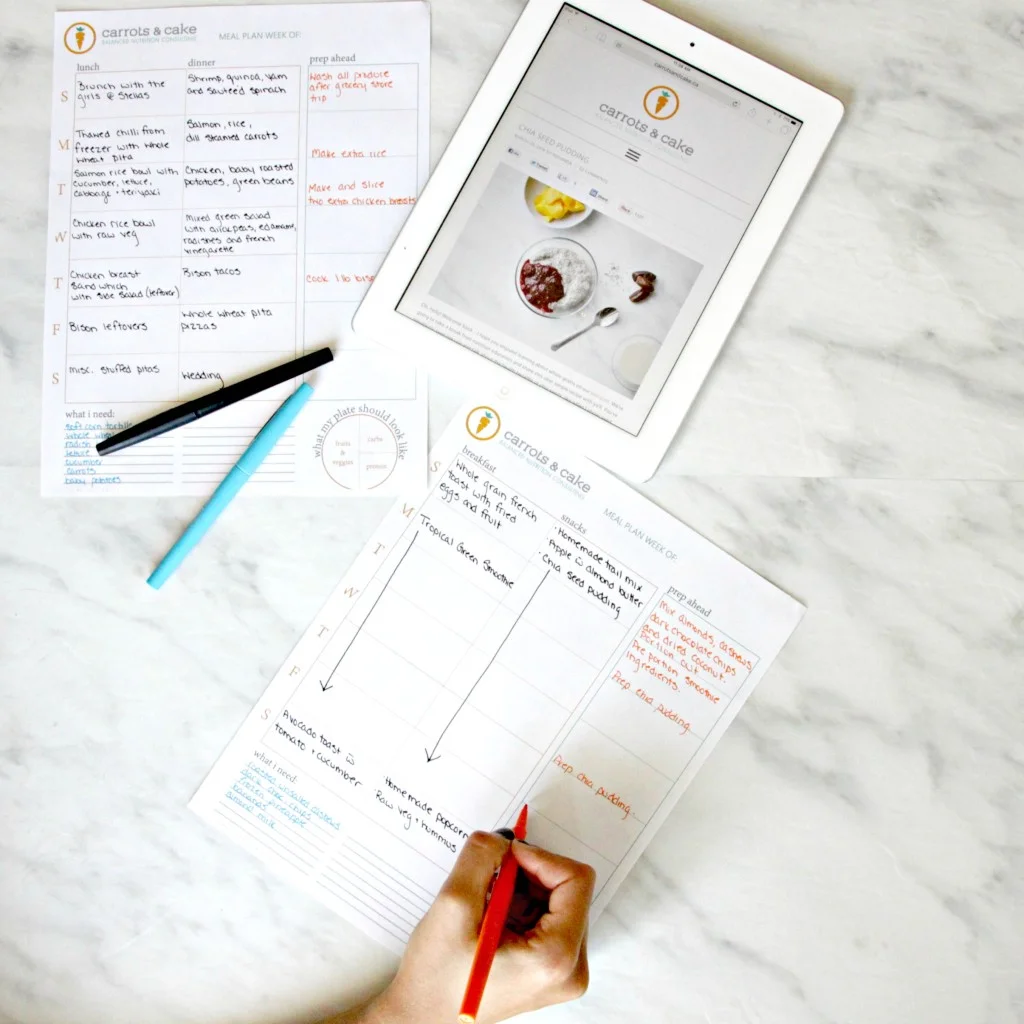 carrots & cake
BALANCED NUTRITION CONSULTING
MEAL PLAN WEEK OF:
lunch
dinner
prep ahead
S
Brunch with the
girls @ Stellas
Shrimp, quinoa, yam
and sauteed spinach
Wash all produce
after grocery store
trip
M
Thawed chilli from
freezer with whole
wheat pita
Salmon, rice,
dill steamed carrots
Make extra rice
T
Salmon rice bowl with
cucumber, lettuce,
cabbage + teriyaki
Chicken, baby roasted
potatoes, green beans
Make and slice
two extra chicken breasts
W
Chicken rice bowl
with raw veg
Mixed green salad
with chickpeas, edamame,
radishes and french
vinegarette
T
Chicken breast
sand which
with side salad (leftover)
Bison tacos
Cook 1 lb
F
Bison leftovers
Whole wheat pita
pizzas
S
misc. stuffed pitas
Wedding
what i need:
soft corn
whole
radish
lettuce
cucumber
carrots
baby potatoes
what my plate should look like
fruits
&
veggies
carbs
protein
carrotsandcake.ca
carrots & cake
CHIA SEED PUDDING
Tweet
Share
carrots & cake
BALANCED NUTRITION CONSULTING
MEAL PLAN WEEK OF:
breakfast
snacks
prep ahead
S
Whole grain french
toast with fried
eggs and fruit
· Homemade trail mix
· Apple w almond butter
· Chia seed pudding
Mix almonds, cashews,
dark chocolate chips
and dried coconut.
Portion out
Pre portion smoothie
ingredients.
M
Tropical Green Smoothie
Prep chia pudding
T
W
T
Prep chia pudding
F
S
Avocado toast w
tomato + cucumber
· Homemade popcorn
· Raw veg + hummus
what i need:
unsalted cashews
dark choc. chips
frozen pineapple
bananas
almond milk